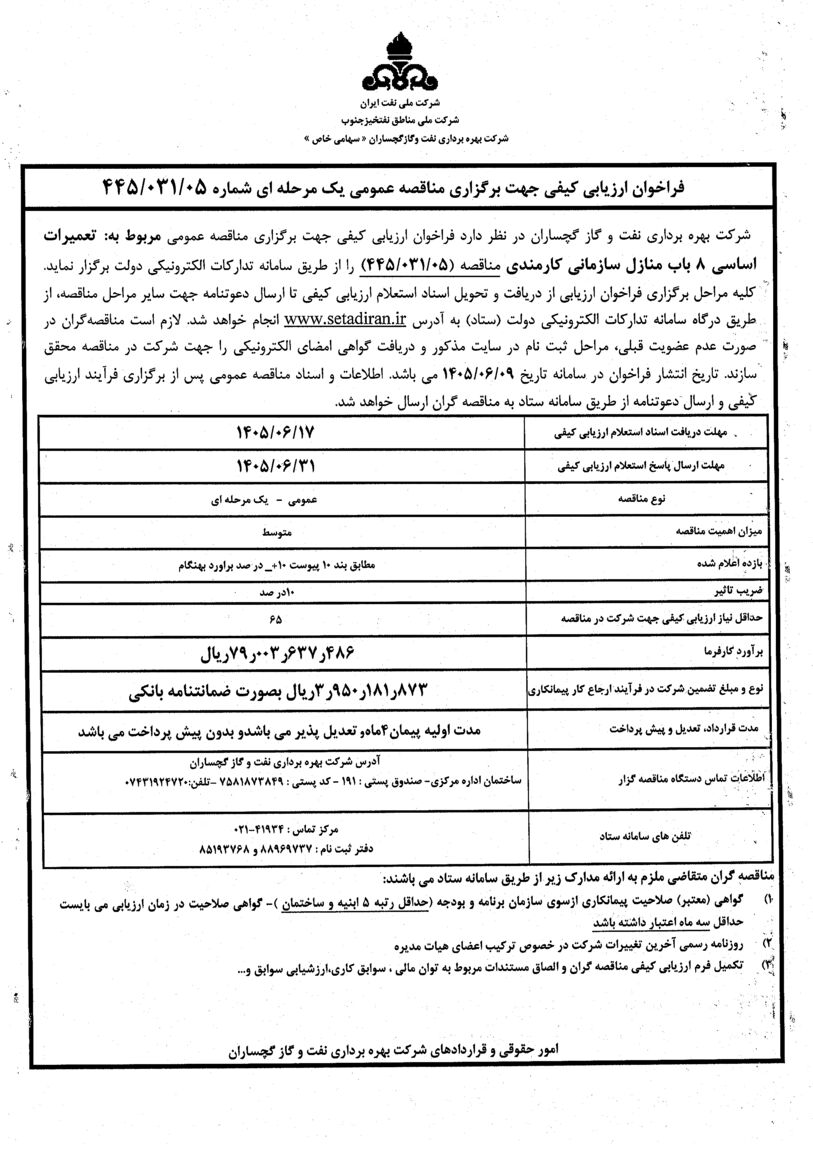 شرکت ملی نفت ایران
شرکت ملی مناطق نفتخیزجنوب
شرکت بهره برداری نفت وگازگچساران « سهامی خاص »
فراخوان ارزیابی کیفی جهت برگزاری مناقصه عمومی یک مرحله ای شماره ۴۴۵/۰۳۱/۰۵
شرکت بهره برداری نفت و گاز گچساران در نظر دارد فراخوان ارزیابی کیفی جهت برگزاری مناقصه عمومی مربوط به: تعمیرات
اساسی ۸ باب منازل سازمانی کارمندی مناقصه (۴۴۵/۰۳۱/۰۵) را از طریق سامانه تدارکات الکترونیکی دولت برگزار نماید.
کلیه مراحل برگزاری فراخوان ارزیابی از دریافت و تحویل اسناد استعلام ارزیابی کیفی تا ارسال دعوتنامه جهت سایر مراحل مناقصه، از
طریق درگاه سامانه تدارکات الکترونیکی دولت (ستاد) به آدرس www.setadiran.ir انجام خواهد شد. لازم است مناقصه‌گران در
صورت عدم عضویت قبلی، مراحل ثبت نام در سایت مذکور و دریافت گواهی امضای الکترونیکی را جهت شرکت در مناقصه محقق
سازند. تاریخ انتشار فراخوان در سامانه تاریخ ۱۴۰۵/۰۶/۰۹ می باشد. اطلاعات و اسناد مناقصه عمومی پس از برگزاری فرآیند ارزیابی
کیفی و ارسال دعوتنامه از طریق سامانه ستاد به مناقصه گران ارسال خواهد شد.
مهلت دریافت اسناد استعلام ارزیابی کیفی ۱۴۰۵/۰۶/۱۷
مهلت ارسال پاسخ استعلام ارزیابی کیفی ۱۴۰۵/۰۶/۳۱
نوع مناقصه عمومی - یک مرحله ای
میزان اهمیت مناقصه متوسط
بازده اعلام شده مطابق بند ۱۰ پیوست ۱۰+_ در صد براورد بهنگام
ضریب تاثیر ۱۰در صد
حداقل نیاز ارزیابی کیفی جهت شرکت در مناقصه ۶۵
برآورد کارفرما ۴۸۶ر۶۳۷ر۰۰۳ر۷۹ریال
نوع و مبلغ تضمین شرکت در فرآیند ارجاع کار پیمانکاری ۸۷۳ر۱۸۱ر۹۵۰ر۳ریال بصورت ضمانتنامه بانکی
مدت قرارداد، تعدیل و پیش پرداخت مدت اولیه پیمان۴ماه‌و تعدیل پذیر می باشدو بدون پیش پرداخت می باشد
اطلاعات تماس دستگاه مناقصه گزار آدرس شرکت بهره برداری نفت و گاز گچساران
ساختمان اداره مرکزی- صندوق پستی : ۱۹۱ - کد پستی : ۷۵۸۱۸۷۳۸۴۹ -تلفن:۰۷۴۳۱۹۲۴۷۲۰
تلفن های سامانه ستاد مرکز تماس : ۴۱۹۳۴-۰۲۱
دفتر ثبت نام : ۸۸۹۶۹۷۳۷ و ۸۵۱۹۳۷۶۸
مناقصه گران متقاضی ملزم به ارائه مدارک زیر از طریق سامانه ستاد می باشند:
۱) گواهی (معتبر) صلاحیت پیمانکاری ازسوی سازمان برنامه و بودجه (حداقل رتبه ۵ ابنیه و ساختمان )- گواهی صلاحیت در زمان ارزیابی می بایست
حداقل سه ماه اعتبار داشته باشد
۲) روزنامه رسمی آخرین تغییرات شرکت در خصوص ترکیب اعضای هیات مدیره
۳) تکمیل فرم ارزیابی کیفی مناقصه گران و الصاق مستندات مربوط به توان مالی ، سوابق کاری،ارزشیابی سوابق و...
امور حقوقی و قراردادهای شرکت بهره برداری نفت و گاز گچساران